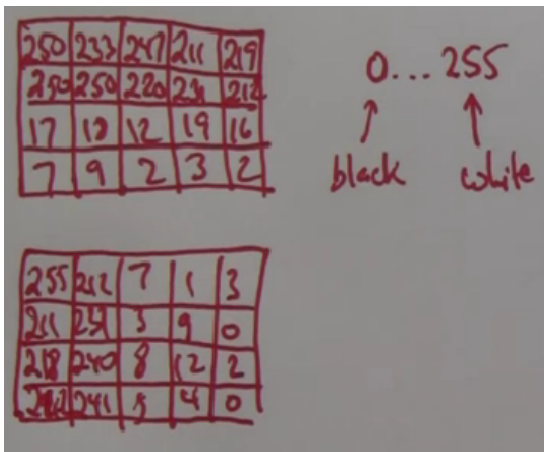 250 233 247 211 219
250 220 212
17 10 12 19 16
7 9 2 3 2
0... 255
black white
255 212 7 1 3
211 3 9 0
218 240 8 12 2
241 4 0